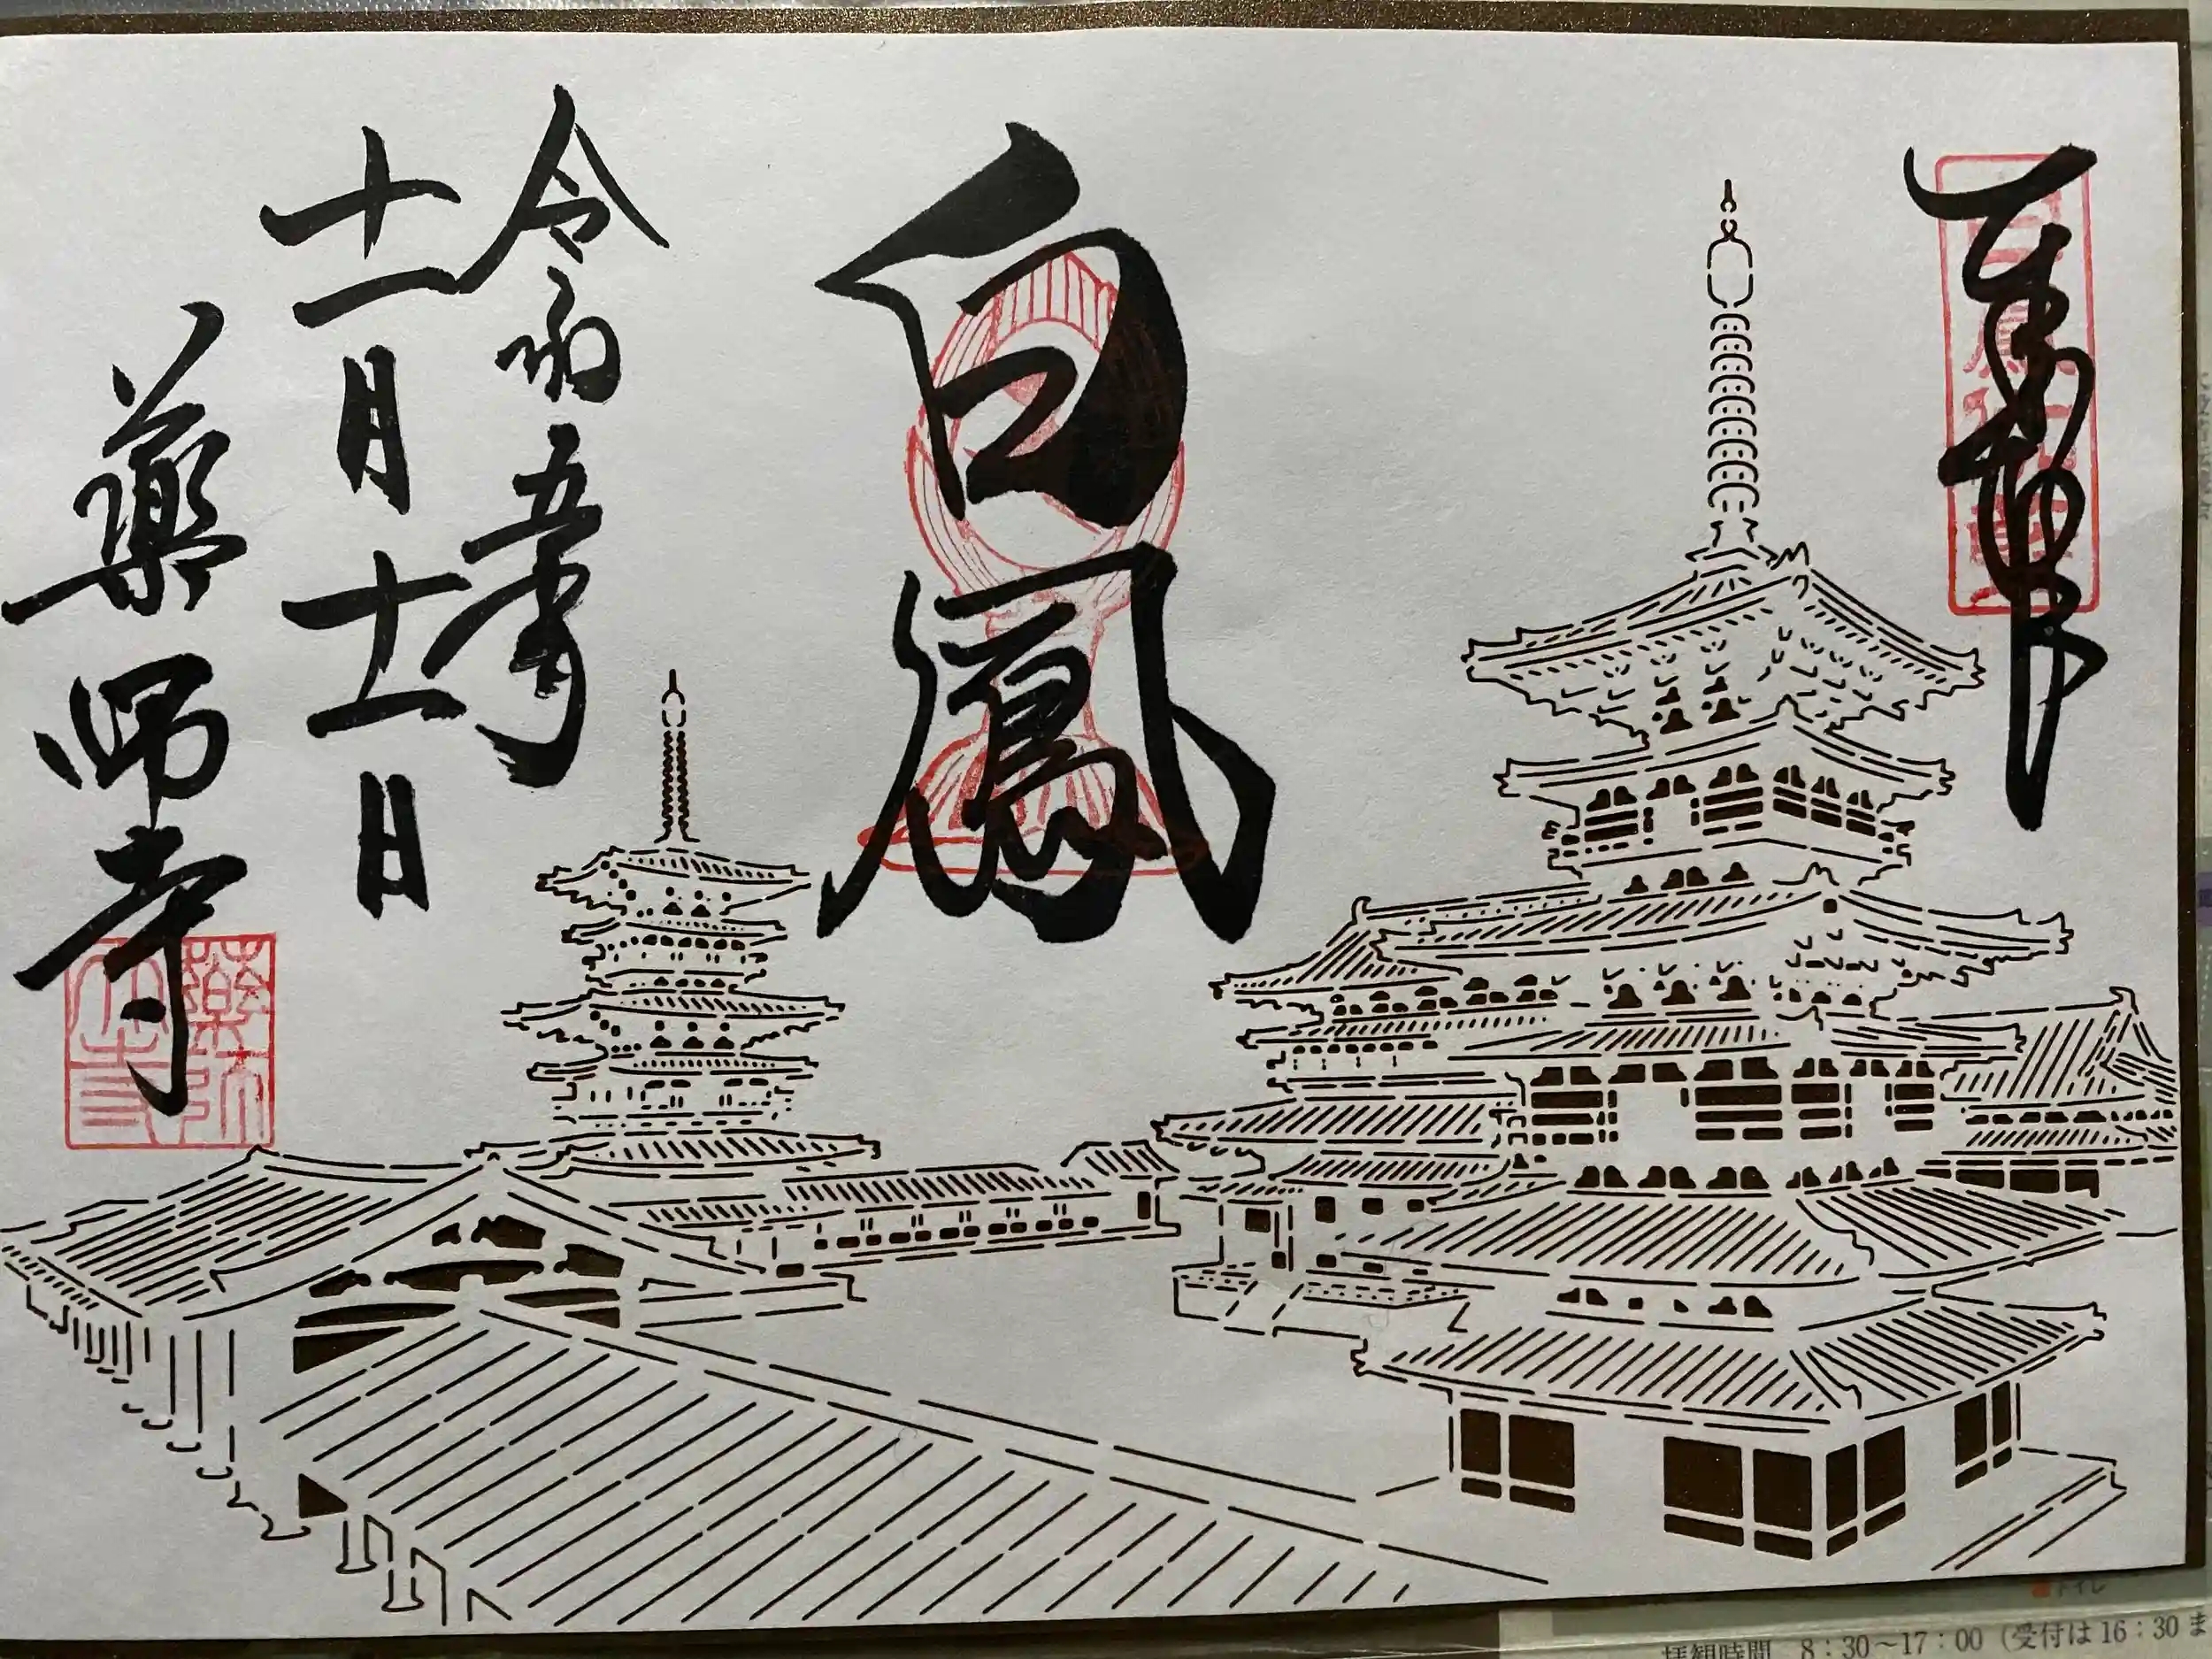 奉拝
白鳳
令和五年
十一月十一日
薬師寺
トイレ
拝観時間 8：30～17：00（受付は16：30ま